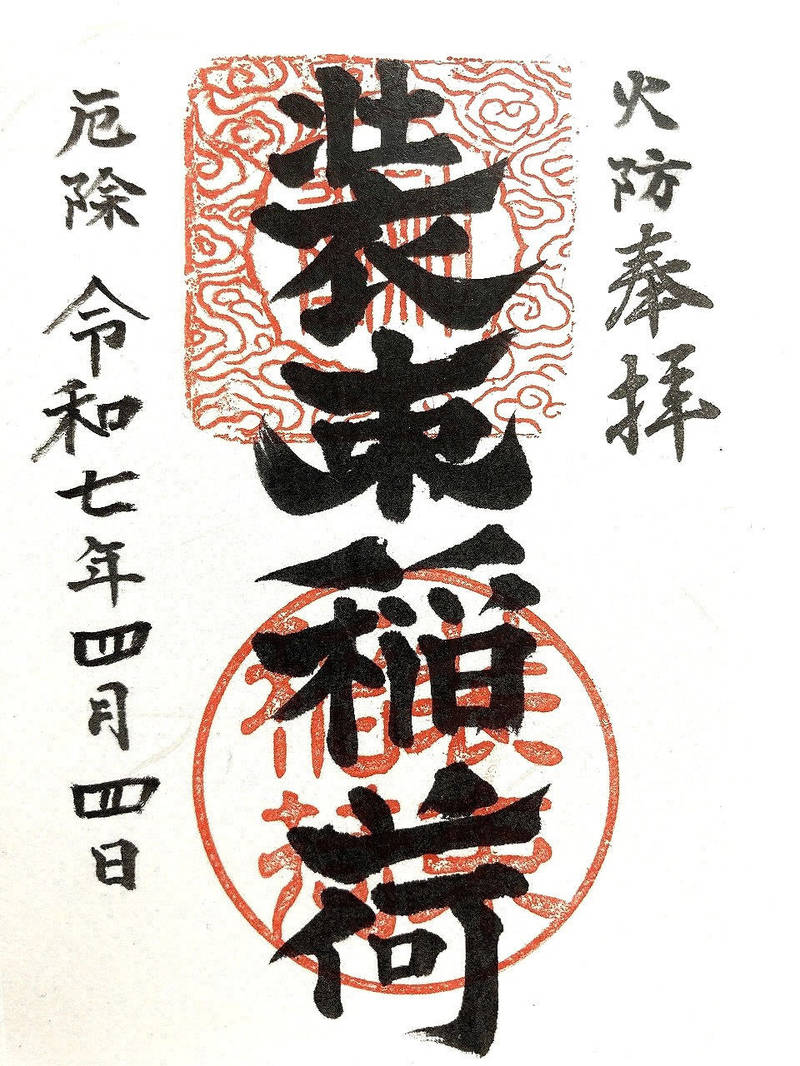 火防奉拝
装束稲荷
厄除 令和七年四月四日